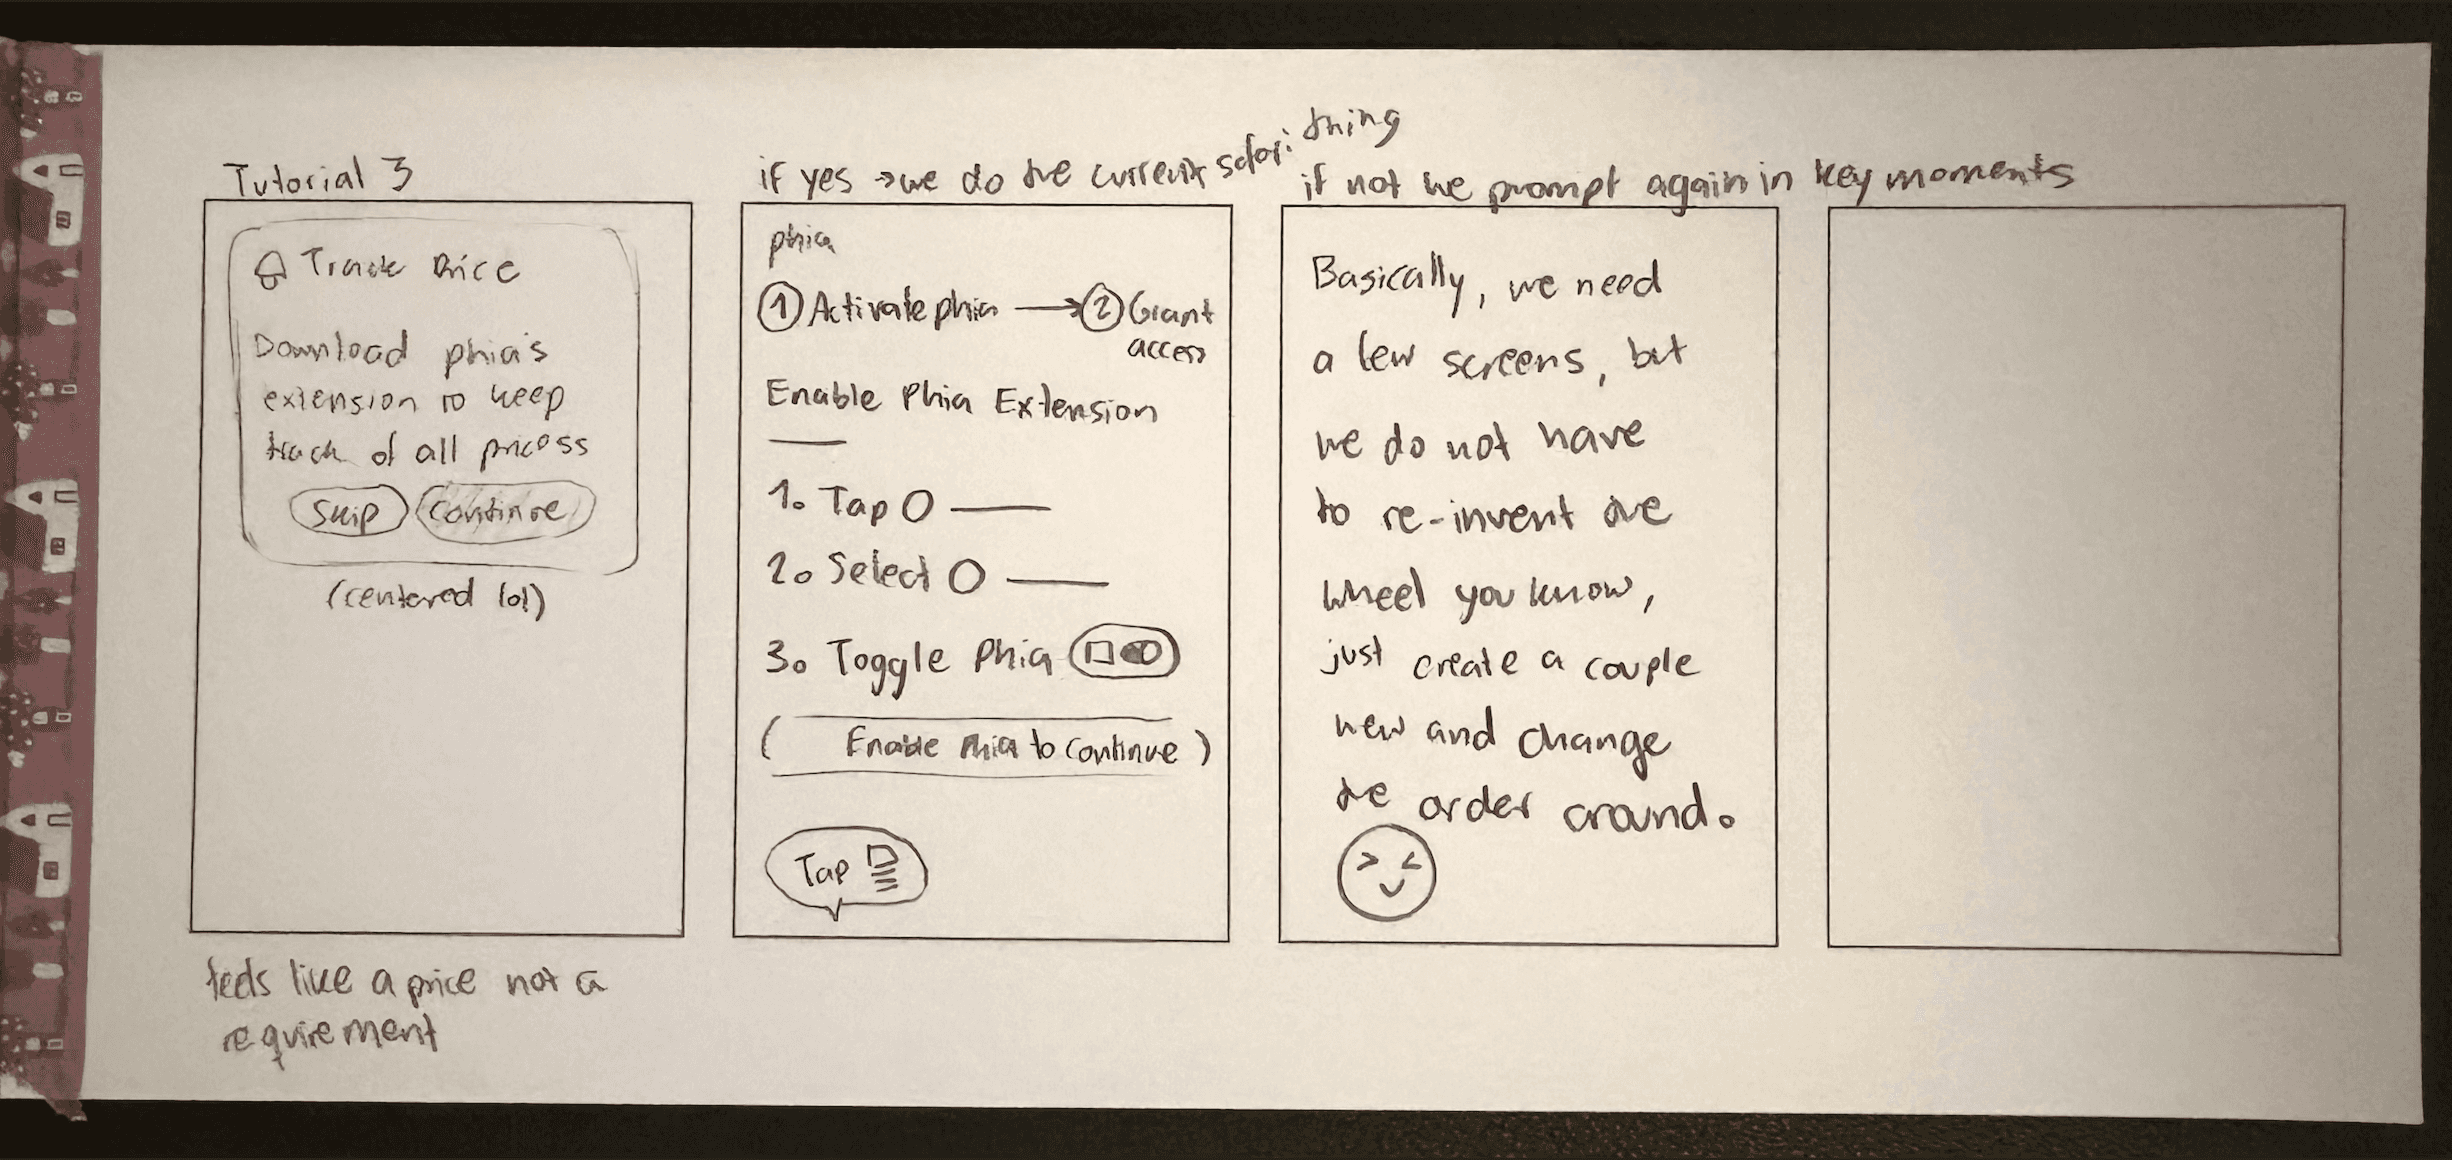 Tutorial 3
Track Price
Download phia's
extension to keep
track of all pricess
Skip
Continue
(centered lol)
feels like a price not a
requirement
if yes → we do the current safari thing
phia
1 Activate phia → 2 Grant
access
Enable Phia Extension
1. Tap
2. Select
3. Toggle Phia
Enable Phia to continue
Tap
if not we prompt again in key moments
Basically, we need
a few screens, but
we do not have
to re-invent the
wheel you know,
just create a couple
new and change
the order around.